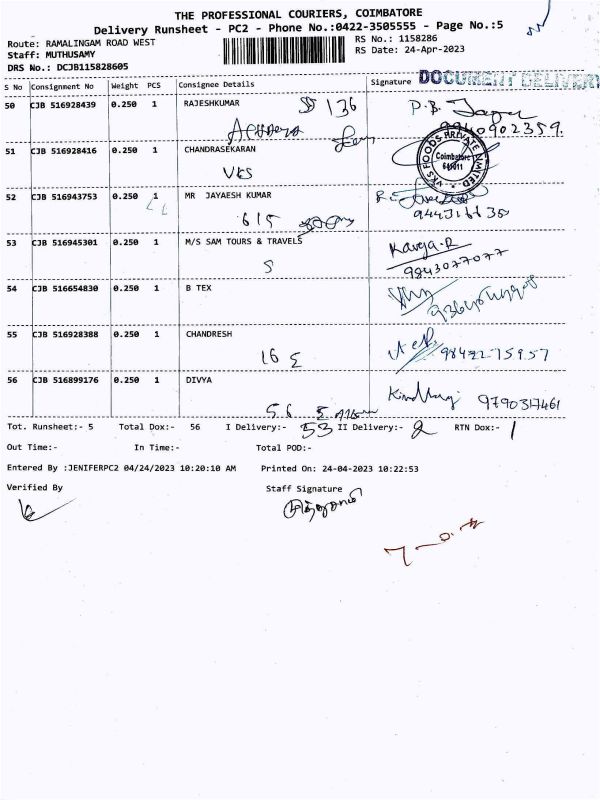 THE PROFESSIONAL COURIERS, COIMBATORE
Delivery Runsheet - PC2 - Phone No.:0422-3505555 - Page No.:5
Route: RAMALINGAM ROAD WEST
RS No.: 1158286
Staff: MUTHUSAMY
RS Date: 24-Apr-2023
DRS No.: DCJB115828605
S No Consignment No Weight PCS Consignee Details Signature DOCUMENT DELIVERY
50 CJB 516928439 0.250 1 RAJESHKUMAR 136
51 CJB 516928416 0.250 1 CHANDRASEKARAN
VKS
VKS FOODS PRIVATE LIMITED
Coimbatore
641011
52 CJB 516943753 0.250 1 MR JAYAESH KUMAR
615
53 CJB 516945301 0.250 1 M/S SAM TOURS & TRAVELS
S
Kavya-R
9843077077
54 CJB 516654830 0.250 1 B TEX
55 CJB 516928388 0.250 1 CHANDRESH
16
98422-75957
56 CJB 516899176 0.250 1 DIVYA
9790317461
Tot. Runsheet:- 5 Total Dox:- 56 I Delivery:- 53 II Delivery:- 2 RTN Dox:- 1
Out Time:- In Time:- Total POD:-
Entered By :JENIFERPC2 04/24/2023 10:20:10 AM Printed On: 24-04-2023 10:22:53
Verified By Staff Signature